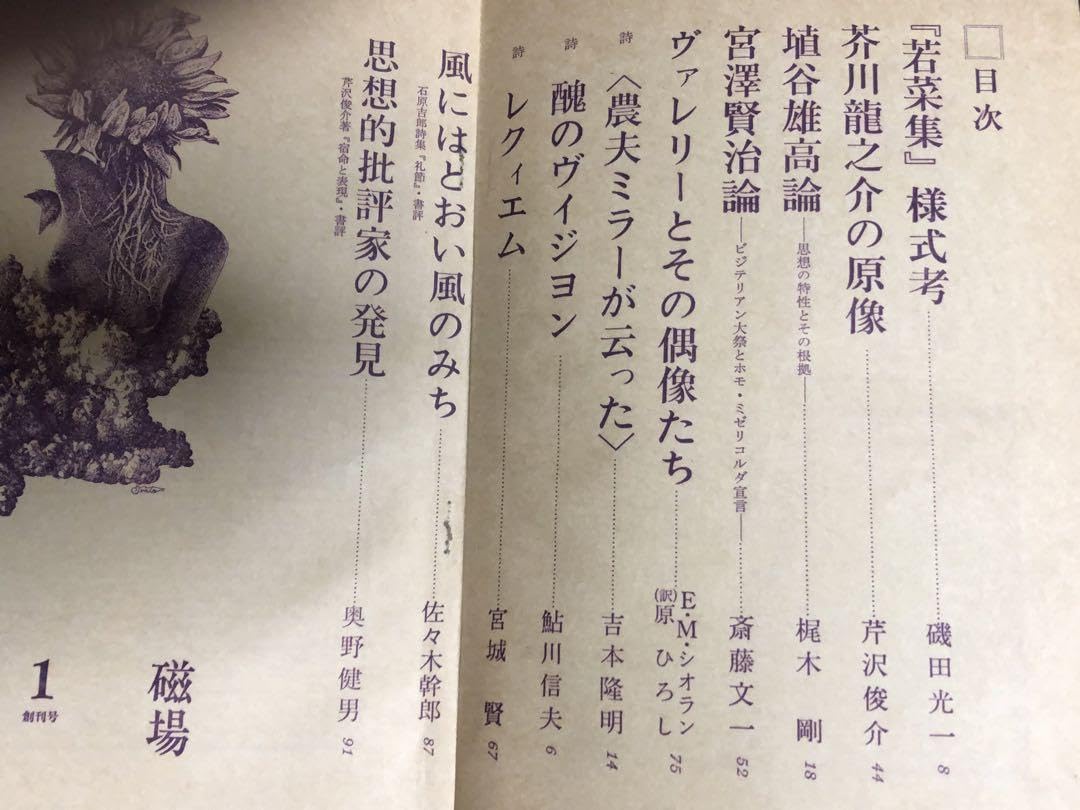 目次
『若菜集』様式考 磯田光一 8
芥川龍之介の原像 芹沢俊介 44
埴谷雄高論 ―思想の特性とその根拠― 梶木 剛 18
宮澤賢治論 ―ビジテリアン大祭とホモ・ミゼリコルダ宣言― 斎藤文一 52
ヴァレリーとその偶像たち E・M・シオラン
(訳)原 ひろし 75
詩 〈農夫ミラーが云った〉 吉本隆明 14
詩 醜のヴィジヨン 鮎川信夫 6
詩 レクィエム 宮城 賢 67
風にはとおい風のみち 佐々木幹郎 87
石原吉郎詩集『礼節』・書評
思想的批評家の発見 奥野健男 91
芹沢俊介著『宿命と表現』・書評
磁場
1
創刊号